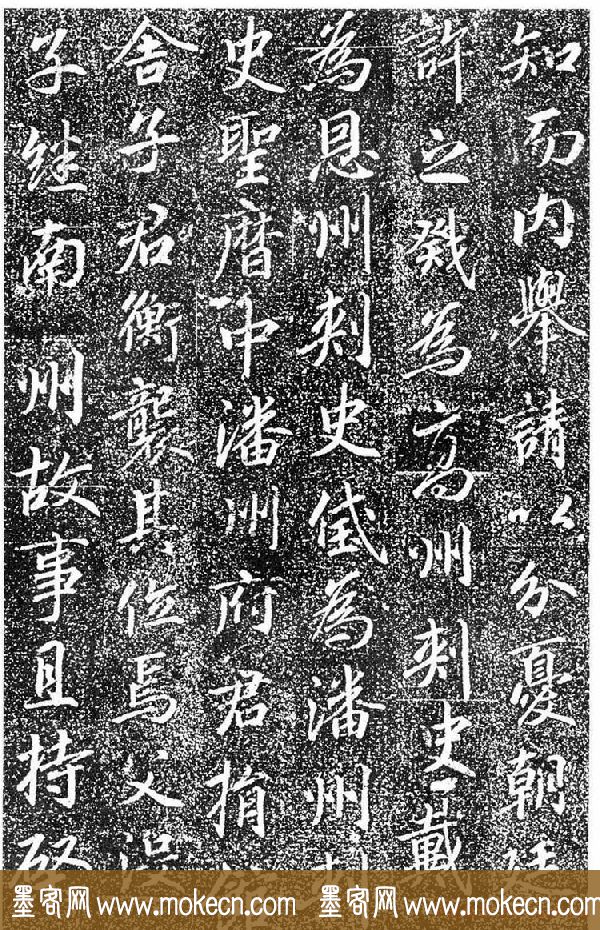 知而内舉請以分憂朝廷
許之戣為高州刺史戴
為恩州刺史為潘州刺
史聖曆中潘州府君捐
舍子君衡襲其位焉父没
子継南州故事且持
墨客网 www.mokecn.com 墨客网 www.mokecn.com